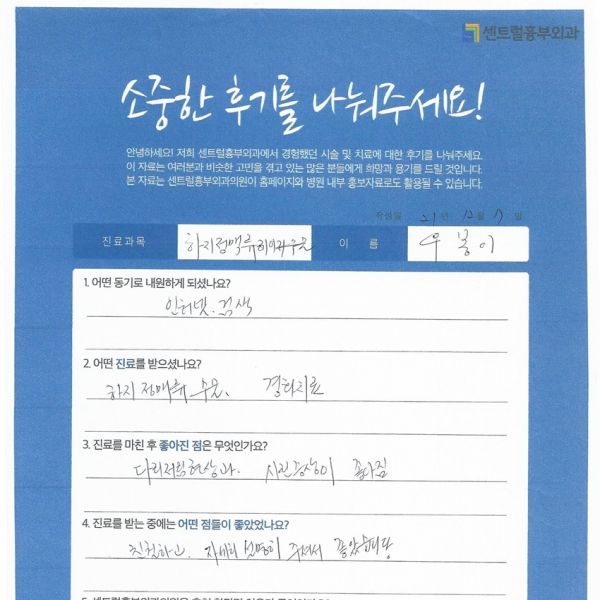 센트럴흉부외과
소중한 후기를 나눠주세요!
안녕하세요! 저희 센트럴흉부외과에서 경험했던 시술 및 치료에 대한 후기를 나눠주세요.
이 자료는 여러분과 비슷한 고민을 겪고 있는 많은 분들에게 희망과 용기를 드릴 것입니다.
본 자료는 센트럴흉부외과의원이 홈페이지와 병원 내부 홍보자료로도 활용될 수 있습니다.
작성일 21년 12월 7일
진료과목 하지정맥류 이름 우봉이
1. 어떤 동기로 내원하게 되셨나요?
인터넷.검색
2. 어떤 진료를 받으셨나요?
하지정맥류 수술. 경화치료
3. 진료를 마친 후 좋아진 점은 무엇인가요?
다리저림현상과. 시린증상이 좋아짐
4. 진료를 받는 중에는 어떤 점들이 좋았었나요?
친절하고. 자세히 설명해 주셔서 좋았습니다